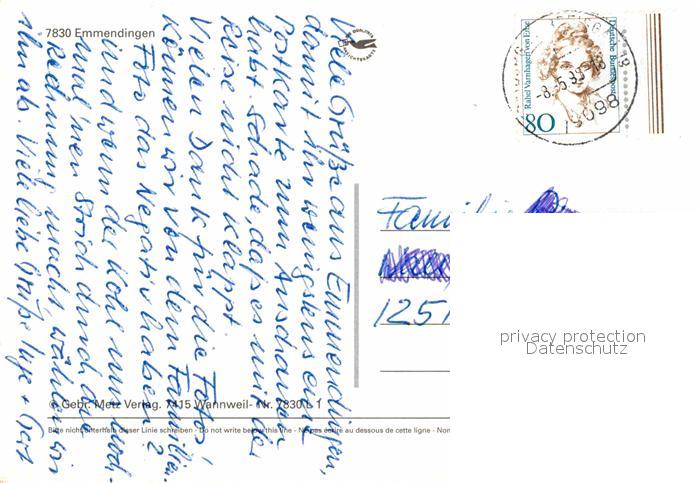 7830 Emmendingen
Viele Grüße aus Emmendingen,
damit Ihr wenigstens eine
Postkarte zum Anschauen
habt. Schade, daß es mit der
Reise nicht klappt.
Vielen Dank für die Fotos!
Können wir von dem Familien-
Foto das Negativ haben?
und wenn der Kohl nun
'nen Strich durch die
Rechnung macht, wählen wir
ihn ab. Viele liebe Grüße Inge + Gert
© Gebr. Metz Verlag. 7415 Wannweil - Nr. 7830 L 1
Bitte nicht unterhalb dieser Linie schreiben · Do not write below this line · Ne pas écrire au dessous de cette ligne · Non
Deutsche Bundespost
Rahel Varnhagen von Ense
80
-8.-5.93-18
Familie
1251
privacy protection
Datenschutz